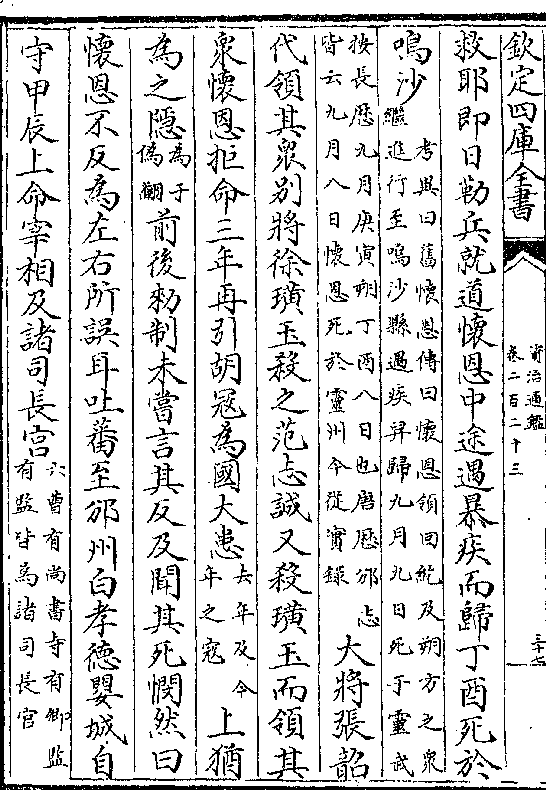 欽定四庫全書
資治通鑑
卷二百二十三
三十七
救耶即日勒兵就道懷恩中途遇暴疾而歸丁酉死於
鳴沙考異曰舊懷恩傳曰懷恩領回紇及朔方之衆
繼進行至鳴沙縣遇疾舁歸九月九日死于靈武
按長歷九月庚寅朔丁酉八日也唐歷邠志
皆云九月八日懷恩死於靈州今從實録大將張韶
代領其衆别將徐璜玉殺之范志誠又殺璜玉而領其
衆懷恩拒命三年再引胡冦為國大患去年及今
年之寇上猶
為之隱為于
偽翻前後勅制未嘗言其反及聞其死憫然曰
懷恩不反為左右所誤耳吐蕃至邠州白孝德嬰城自
守甲辰上命宰相及諸司長官六曹有尚書寺有卿監
有監皆為諸司長官